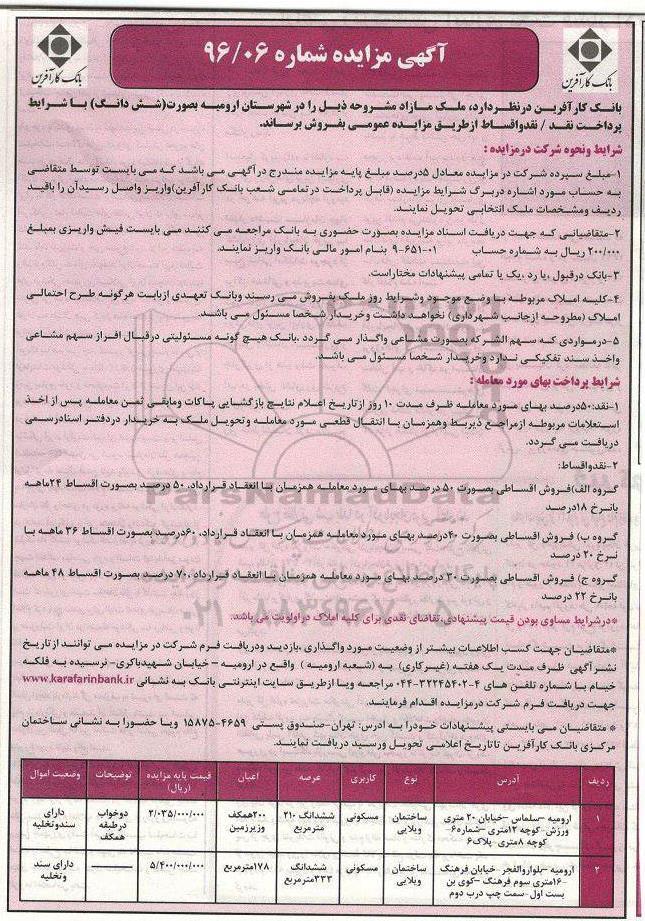 آگهی مزایده شماره ۹۶/۰۶
بانک کارآفرین
بانک کارآفرین
بانک کارآفرین درنظردارد، ملک مازاد مشروحه ذیل را در شهرستان ارومیه بصورت(شش دانگ) با شرایط
پرداخت نقد / نقدواقساط ازطریق مزایده عمومی بفروش برساند.
شرایط ونحوه شرکت درمزایده :
۱-مبلغ سپرده شرکت در مزایده معادل ۵درصد مبلغ پایه مزایده مندرج درآگهی می باشد که می بایست توسط متقاضی
به حساب مورد اشاره دربرگ شرایط مزایده (قابل پرداخت درتمامی شعب بانک کارآفرین)واریز واصل رسیدآن را باقید
ردیف ومشخصات ملک انتخابی تحویل نمایند.
۲-متقاضیانی که جهت دریافت اسناد مزایده بصورت حضوری به بانک مراجعه می کنند می بایست فیش واریزی بمبلغ
۲۰۰/۰۰۰ ریال به شماره حساب ۰۱-۶۵۱-۹ بنام امور مالی بانک واریز نمایند.
۳-بانک درقبول ،یا رد ،یک یا تمامی پیشنهادات مختاراست.
۴-کلیه املاک مربوطه با وضع موجود وشرایط روز ملک بفروش می رسند وبانک تعهدی ازبابت هرگونه طرح احتمالی
املاک (مطروحه ازجانب شهرداری) نخواهد داشت وخریدار شخصا مسئول می باشد.
۵-درمواردی که سهم الشرکه بصورت مشاعی واگذار می گردد ،بانک هیچ گونه مسئولیتی درقبال افراز سهم مشاعی
واخذ سند تفکیکی ندارد وخریدار شخصا مسئول می باشد.
شرایط پرداخت بهای مورد معامله :
۱-نقد:۵۰درصد بهای مورد معامله ظرف مدت ۱۰ روز ازتاریخ اعلام نتایج بازگشایی پاکات ومابقی ثمن معامله پس از اخذ
استعلامات مربوطه ازمراجع ذیربط وهمزمان با انتقال قطعی مورد معامله وتحویل ملک به خریدار دردفتر اسنادرسمی
دریافت می گردد.
۲-نقدواقساط:
گروه الف)فروش اقساطی بصورت ۵۰ درصد بهای مورد معامله همزمان با انعقاد قرارداد، ۵۰ درصد بصورت اقساط ۲۴ماهه
بانرخ ۱۸درصد
گروه ب) فروش اقساطی بصورت ۴۰درصد بهای مورد معامله همزمان با انعقاد قرارداد، ۶۰درصد بصورت اقساط ۳۶ ماهه با
نرخ ۲۰ درصد
گروه ج) فروش اقساطی بصورت ۳۰ درصد بهای مورد معامله همزمان با انعقاد قرارداد ،۷۰ درصد بصورت اقساط ۴۸ ماهه
بانرخ ۲۲ درصد
*درشرایط مساوی بودن قیمت پیشنهادی،تقاضای نقدی برای کلیه املاک دراولویت می باشد.
*متقاضیان جهت کسب اطلاعات بیشتر از وضعیت مورد واگذاری ،بازدید ودریافت فرم شرکت در مزایده می توانند ازتاریخ
نشرآگهی ظرف مدت یک هفته (غیرکاری) به (شعبه ارومیه ) واقع در ارومیه – خیابان شهیدباکری- نرسیده به فلکه
خیام با شماره تلفن های ۴-۳۲۲۴۵۴۰۲-۰۴۴ مراجعه ویا ازطریق سایت اینترنتی بانک به نشانی www.karafarinbank.ir
جهت دریافت فرم شرکت درمزایده اقدام فرمایند.
* متقاضیان می بایستی پیشنهادات خودرا به ادرس: تهران-صندوق پستی ۴۶۵۹-۱۵۸۷۵ ویا حضورا به نشانی ساختمان
مرکزی بانک کارآفرین تاتاریخ اعلامی تحویل ورسید دریافت نمایند.
ردیف آدرس نوع کاربری عرصه اعیان قیمت پایه مزایده (ریال) توضیحات وضعیت اموال
۱ ارومیه –سلماس –خیابان ۲۰ متری ورزش-کوچه ۱۲متری –شماره۶- کوچه ۸متری- پلاک۶ ساختمان ویلایی مسکونی ششدانگ ۲۱۰ مترمربع ۲۰۰همکف وزیرزمین ۲/۰۳۵/۰۰۰/۰۰۰ دوخواب درطبقه همکف دارای سندوتخلیه
۲ ارومیه –بلواروالفجر- خیابان فرهنگ -۱۶متری سوم فرهنگ –کوی بن بست اول-سمت چپ درب دوم ساختمان ویلایی مسکونی ششدانگ ۳۳۳مترمربع ۱۷۸مترمربع ۵/۴۰۰/۰۰۰/۰۰۰ ——— دارای سند وتخلیه
ParsNamadData
۰۲۱-۸۸۳۴۹۶۷۰-۵